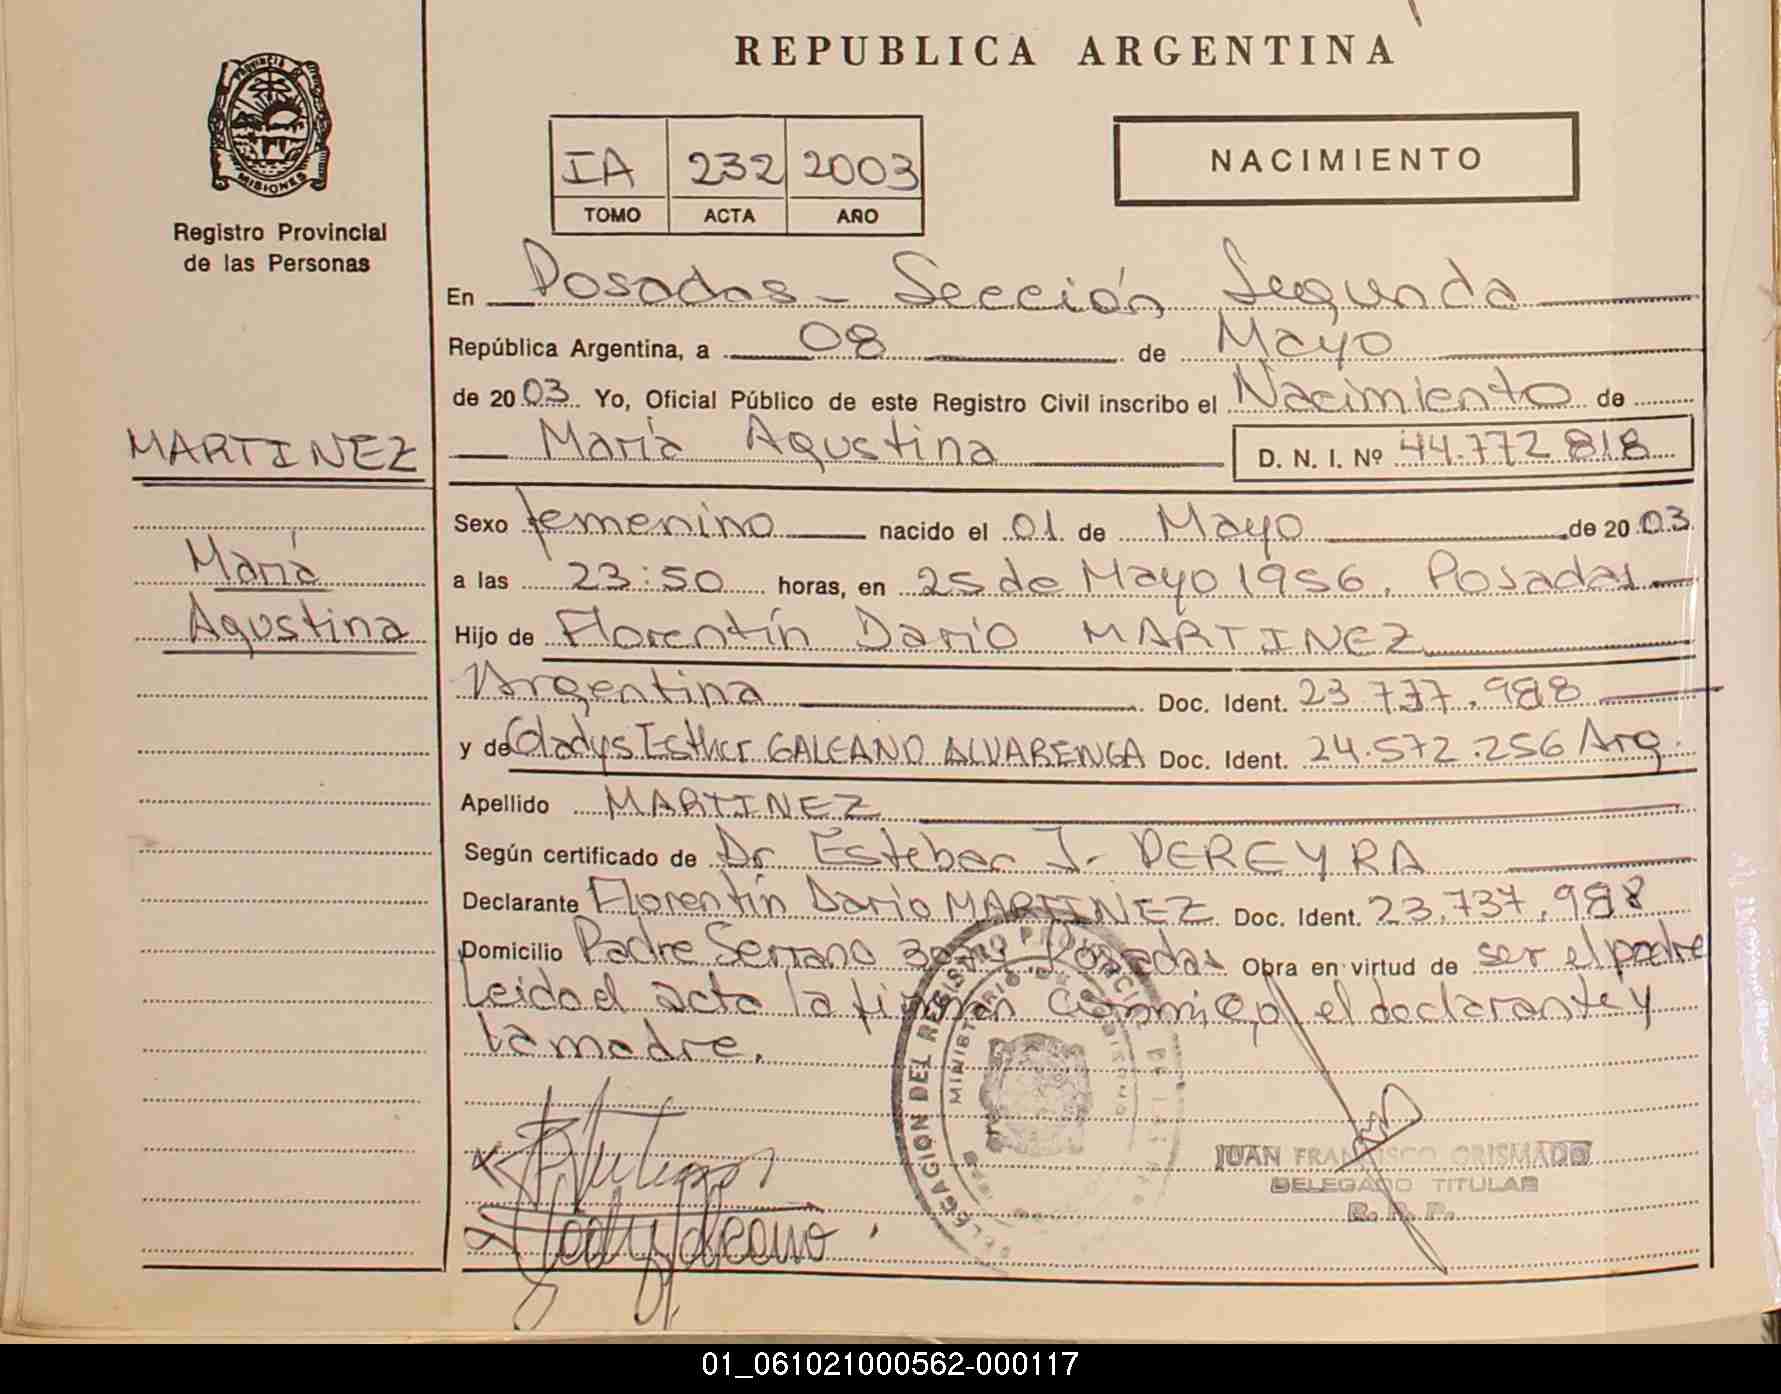 REPUBLICA ARGENTINA
PROVINCIA DE MISIONES
Registro Provincial
de las Personas
IA 232 2003
TOMO ACTA AÑO
NACIMIENTO
En Posadas - Sección Segunda
República Argentina, a 08 de Mayo
de 2003 Yo, Oficial Público de este Registro Civil inscribo el Nacimiento de
María Agustina D. N. I. Nº 44.772.818
MARTINEZ
María
Agustina
Sexo femenino nacido el 01 de Mayo de 2003
a las 23:50 horas, en 25 de Mayo 1956, Posadas
Hijo de Florentín Darío MARTINEZ
Argentina Doc. Ident. 23.737.988
y de Gladys Esther GALEANO ALVARENGA Doc. Ident. 24.572.256 Arg.
Apellido MARTINEZ
Según certificado de Dr Esteban J. PEREYRA
Declarante Florentín Darío MARTINEZ Doc. Ident. 23.737.988
Domicilio Padre Serrano Posadas Obra en virtud de ser el padre
Leido el acta la firman conmigo, el declarante y
la madre.
DELEGACION DEL REGISTRO PROVINCIAL DE LAS
MINISTERIO DE GOBIERNO
JUAN FRANCISCO ORISMADO
DELEGADO TITULAR
R. P. P.
01_061021000562-000117